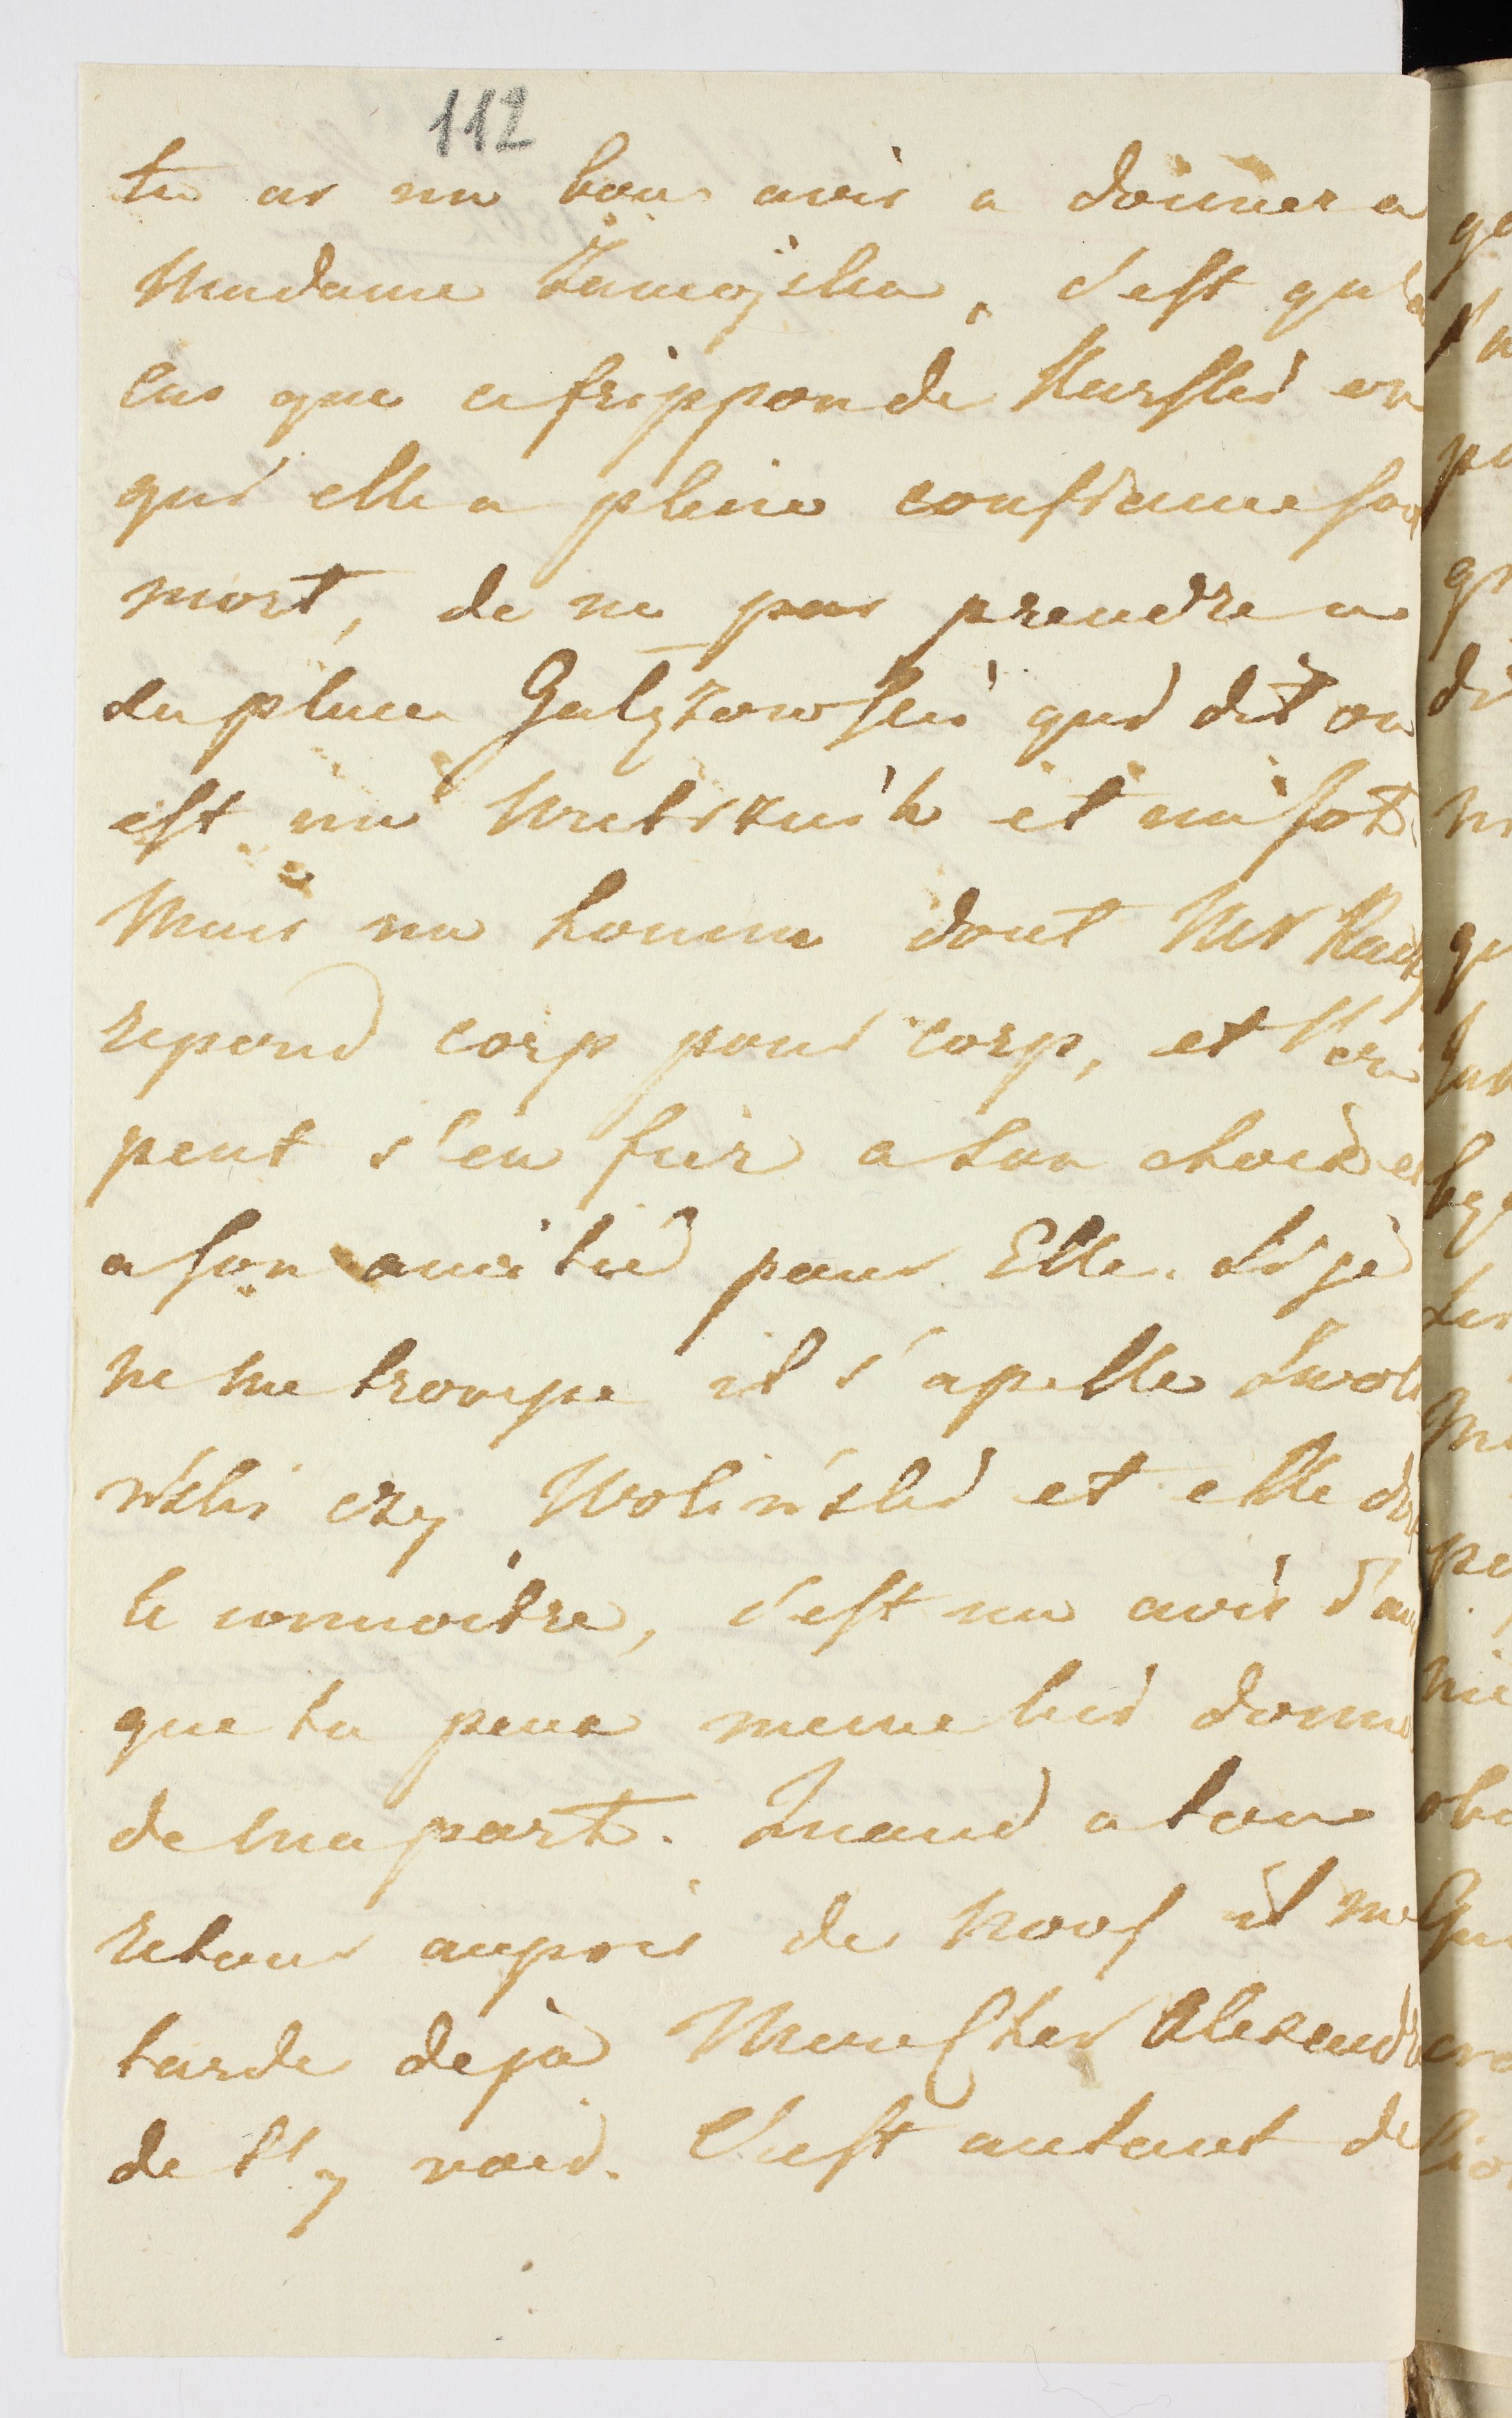 112
tu as un bon avis a donner a
Madame Zamojska, c'est qu'en
cas que ce frippon de Kurski en
qui elle a pleine confiance soit
mort, de ne pas prendre a
sa place Gałęzowski qui dit on
est un et un sot
Mais un homme dont Mr
repond corp pour corp, et l'on
peut s'en fier a son choix et
a son amitié pour Elle. Si je
ne me trompe il s'apelle Swoli
ński czy Woliński et elle doit
le connoitre, c'est un avis
que tu peux meme lui donner
de ma part. Quand a ton
retour aupres de nous il me
tarde dejà Mon Cher Alexandre
de t'y voir. C'est autant de